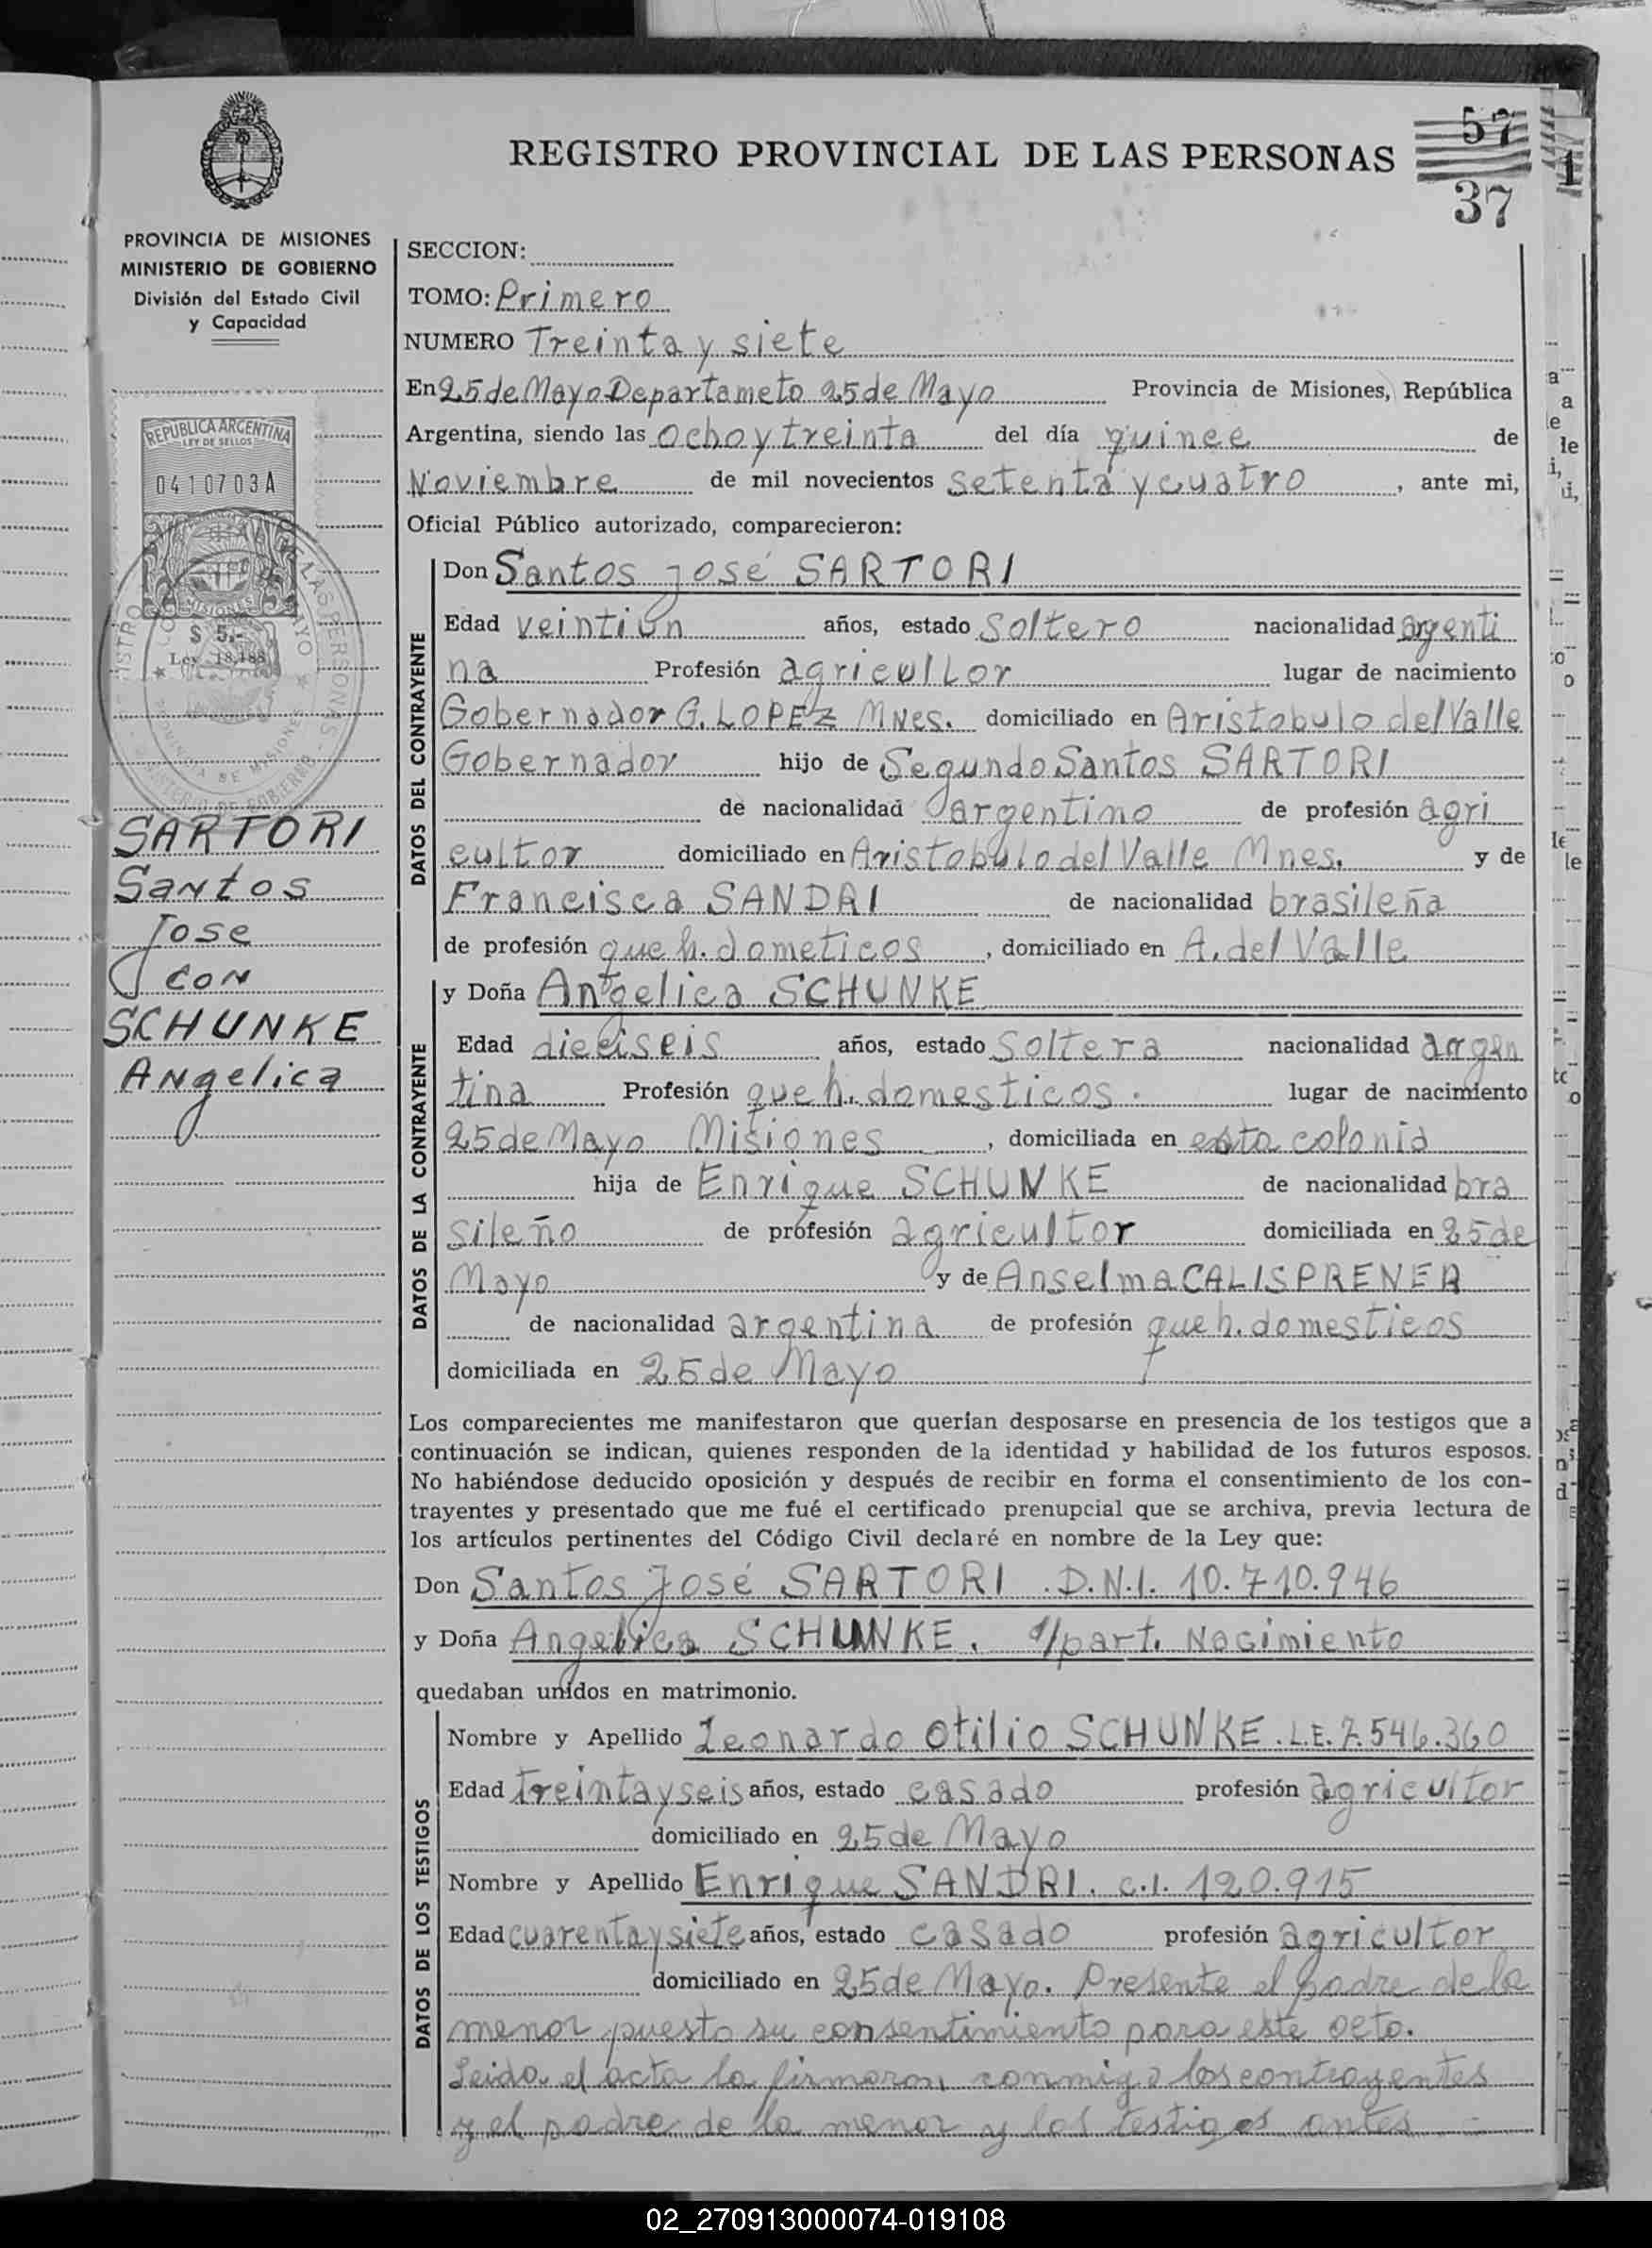 57
37
1
REGISTRO PROVINCIAL DE LAS PERSONAS
PROVINCIA DE MISIONES
MINISTERIO DE GOBIERNO
División del Estado Civil
y Capacidad
REPUBLICA ARGENTINA
LEY DE SELLOS
0410703A
MISIONES
$ 5.-
Ley 18.188
SARTORI
Santos
Jose
CON
SCHUNKE
Angelica
SECCION:
TOMO: Primero
NUMERO Treinta y siete
En 25 de Mayo Departameto 25 de Mayo Provincia de Misiones, República
Argentina, siendo las Ocho y treinta del día quince de
Noviembre de mil novecientos setenta y cuatro, ante mi,
Oficial Público autorizado, comparecieron:
DATOS DEL CONTRAYENTE
Don Santos José SARTORI
Edad veintiún años, estado Soltero nacionalidad argenti
na Profesión agricultor lugar de nacimiento
Gobernador G. LOPEZ Mnes. domiciliado en Aristobulo del Valle
Gobernador hijo de Segundo Santos SARTORI
de nacionalidad argentino de profesión agri
cultor domiciliado en Aristobulo del Valle Mnes. y de
Francisca SANDRI de nacionalidad brasileña
de profesión que h. dometicos, domiciliado en A. del Valle
DATOS DE LA CONTRAYENTE
y Doña Angelica SCHUNKE
Edad dieciseis años, estado Soltera nacionalidad argen
tina Profesión que h. domesticos. lugar de nacimiento
25 de Mayo Misiones, domiciliada en esta colonia
hija de Enrique SCHUNKE de nacionalidad bra
sileño de profesión agricultor domiciliada en 25 de
Mayo y de Anselma CALISPRENER
de nacionalidad argentina de profesión que h. domesticos
domiciliada en 25 de Mayo
Los comparecientes me manifestaron que querían desposarse en presencia de los testigos que a
continuación se indican, quienes responden de la identidad y habilidad de los futuros esposos.
No habiéndose deducido oposición y después de recibir en forma el consentimiento de los con-
trayentes y presentado que me fué el certificado prenupcial que se archiva, previa lectura de
los artículos pertinentes del Código Civil declaré en nombre de la Ley que:
Don Santos José SARTORI . D.N.I. 10.710.946
y Doña Angelica SCHUNKE. s/part. Nacimiento
quedaban unidos en matrimonio.
DATOS DE LOS TESTIGOS
Nombre y Apellido Leonardo Otilio SCHUNKE. L.E. 7.546.360
Edad treinta y seis años, estado casado profesión agricultor
domiciliado en 25 de Mayo
Nombre y Apellido Enrique SANDRI. C.I. 120.915
Edad cuarenta y siete años, estado casado profesión agricultor
domiciliado en 25 de Mayo. Presente el padre de la
menor puesto su consentimiento para este acto.
Leido el acta la firmaron conmigo los contrayentes
y el padre de la menor y los testigos antes
02_270913000074-019108